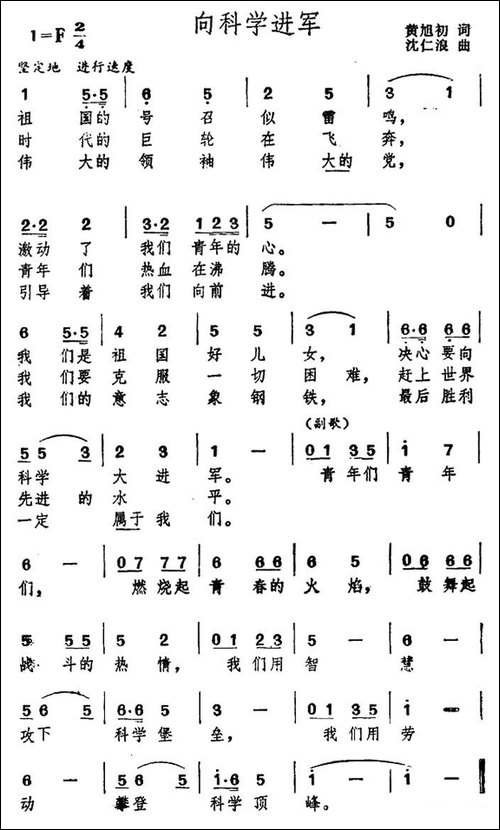 向科学进军
1=F 2/4
黄旭初 词
沈仁浪 曲
坚定地 进行速度
1 5·5 | 6 5 | 2 5 | 3 1 |
祖 国的 号 召 似 雷 鸣,
时 代的 巨 轮 在 飞 奔,
伟 大的 领 袖 伟 大的 党,
2·2 2 | 3·2 1 2 3 | 5 — | 5 0 |
激动 了 我们 青年的 心。
青年 们 热血 在沸 腾。
引导 着 我们 向前 进。
6 5·5 | 4 2 | 5 5 | 3 1 | 6·6 6 6 |
我 们是 祖 国 好 儿 女, 决心 要向
我 们要 克 服 一 切 困 难, 赶上 世界
我 们的 意 志 象 钢 铁, 最后 胜利
(副歌)
5 5 3 | 2 3 | 1 — | 0 1 3 5 | i 7 |
科学 大 进 军。 青 年们 青 年
先进 的 水 平。
一定 属于 我 们。
6 — | 0 7 7 7 | 6 6 6 | 5 5 | 0 6 6 6 |
们, 燃 烧起 青 春的 火 焰, 鼓 舞起
5 5 5 | 5 2 | 0 1 2 3 | 5 — | 6 — |
战 斗的 热 情, 我 们用 智 慧
5 6 5 | 6·6 5 | 3 — | 0 1 3 5 | i — |
攻下 科学 堡 垒, 我 们用 劳
6 — | 5 6 5 | i·6 5 | i — | i — |
动 攀登 科学 顶 峰。